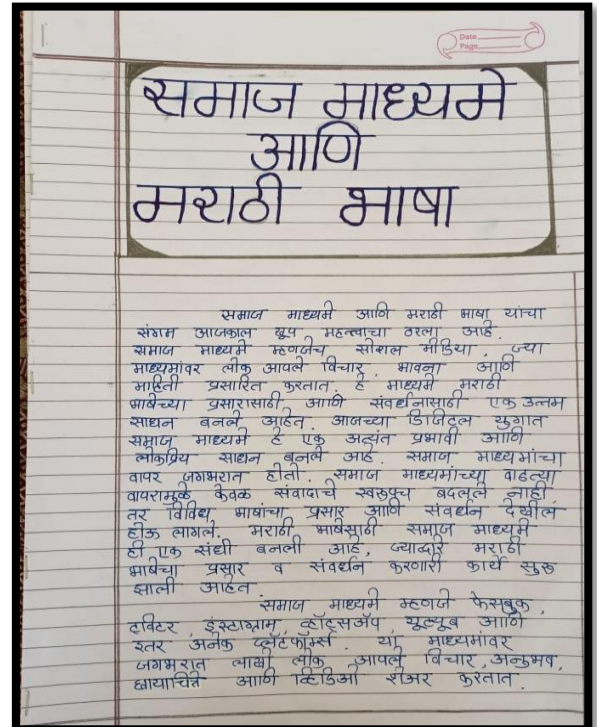 Date
Page
समाज माध्यमे
आणि
मराठी भाषा
समाज माध्यमे आणि मराठी भाषा यांचा
संगम आजकाल खूप महत्त्वाचा ठरला आहे.
समाज माध्यमे म्हणजेच सोशल मीडिया. ज्या
माध्यमांवर लोक आपले विचार, भावना आणि
माहिती प्रसारित करतात. हे माध्यमे मराठी
भाषेच्या प्रसारासाठी आणि संवर्धनासाठी एक उत्तम
साधन बनले आहेत. आजच्या डिजिटल युगात
समाज माध्यमे हे एक अत्यंत प्रभावी आणि
लोकप्रिय साधन बनले आहे. समाज माध्यमांचा
वापर जगभरात होतो. समाज माध्यमांच्या वाढत्या
वापरामुळे केवळ संवादाचे स्वरूपच बदलले नाही,
तर विविध भाषांचा प्रसार आणि संवर्धन देखील
होऊ लागले. मराठी भाषेसाठी समाज माध्यमे
ही एक संधी बनली आहे, ज्याद्वारे मराठी
भाषेचा प्रसार व संवर्धन करणारी कार्ये सुरू
झाली आहेत.
समाज माध्यमे म्हणजे फेसबुक,
ट्विटर, इंस्टाग्राम, व्हॉट्सॲप, यूट्यूब आणि
इतर अनेक प्लॅटफॉर्म्स. या माध्यमांवर
जगभरात लाखो लोक आपले विचार, अनुभव,
छायाचित्रे आणि व्हिडिओ शेअर करतात.